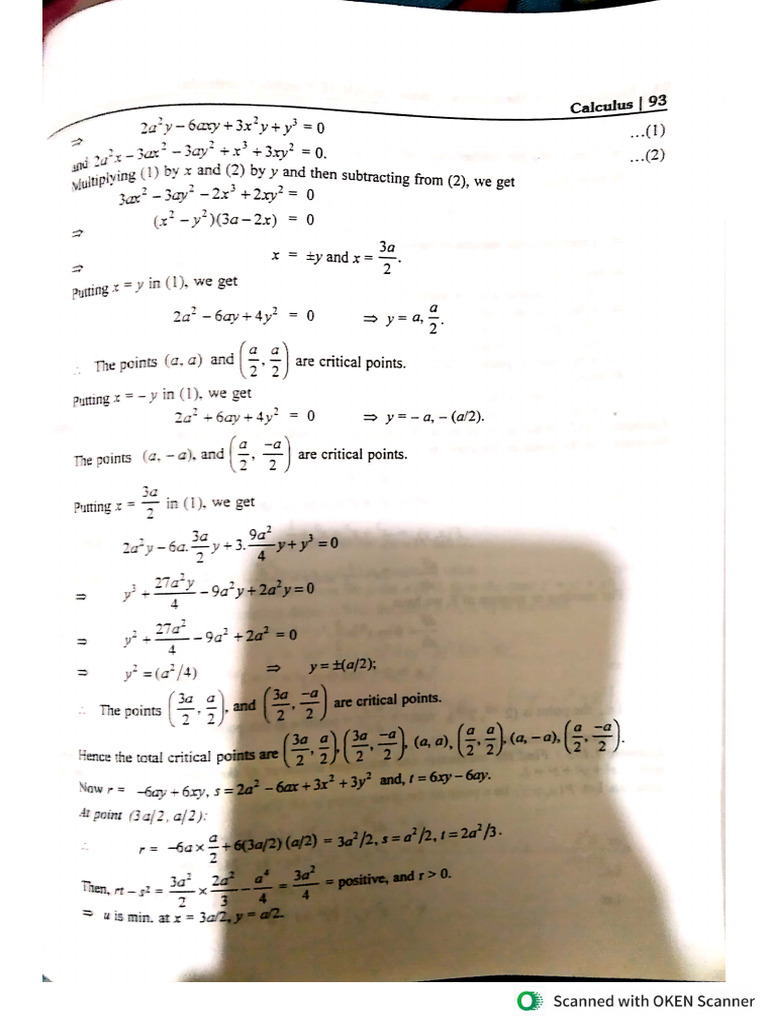 Calculus | 93
⇒ 2a²y – 6axy + 3x²y + y³ = 0 ...(1)
and 2a²x – 3ax² – 3ay² + x³ + 3xy² = 0. ...(2)
Multiplying (1) by x and (2) by y and then subtracting from (2), we get
3ax² – 3ay² – 2x³ + 2xy² = 0
⇒ (x² – y²)(3a – 2x) = 0
⇒ x = ±y and x = 3a/2.
Putting x = y in (1), we get
2a² – 6ay + 4y² = 0 ⇒ y = a, a/2.
∴ The points (a, a) and (a/2, a/2) are critical points.
Putting x = – y in (1), we get
2a² + 6ay + 4y² = 0 ⇒ y = – a, – (a/2).
The points (a, – a), and (a/2, –a/2) are critical points.
Putting x = 3a/2 in (1), we get
2a²y – 6a. 3a/2 y + 3. 9a²/4 y + y³ = 0
⇒ y³ + 27a²y/4 – 9a²y + 2a²y = 0
⇒ y² + 27a²/4 – 9a² + 2a² = 0
⇒ y² = (a²/4) ⇒ y = ±(a/2);
∴ The points (3a/2, a/2), and (3a/2, –a/2) are critical points.
Hence the total critical points are (3a/2, a/2), (3a/2, –a/2), (a, a), (a/2, a/2), (a, – a), (a/2, –a/2).
Now r = –6ay + 6xy, s = 2a² – 6ax + 3x² + 3y² and, t = 6xy – 6ay.
At point (3a/2, a/2):
∴ r = –6a × a/2 + 6(3a/2) (a/2) = 3a²/2, s = a²/2, t = 2a²/3.
Then, rt – s² = 3a²/2 × 2a²/3 – a⁴/4 = 3a²/4 = positive, and r > 0.
⇒ u is min. at x = 3a/2, y = a/2.
Scanned with OKEN Scanner